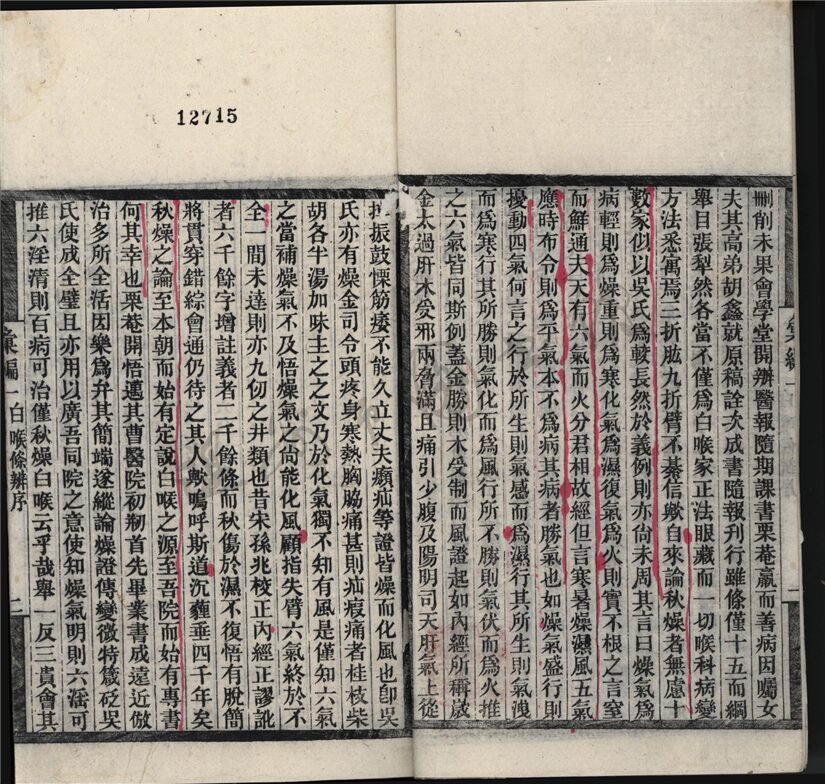 刪削未果會學堂開辦醫報隨期課書栗菴羸而善病因囑女
夫其高弟胡鑫就原稿詮次成書隨報刊行雖條僅十五而綱
舉目張犁然各當不僅爲白喉家正法眼藏而一切喉科病變
方法悉寓焉三折肱九折臂不綦信歟自來論秋燥者無慮十
數家似以吳氏爲較長然於義例則亦尚未周其言曰燥氣爲
病輕則爲燥重則爲寒化氣爲濕復氣爲火則實不根之言窒
而鮮通夫天有六氣而火分君相故經但言寒暑燥濕風五氣
應時布令則爲平氣本不爲病其病者勝氣也如燥氣盛行則
擾動四氣何言之行於所生則氣感而爲濕行其所生則氣洩
而爲寒行其所勝則氣化而爲風行所不勝則氣伏而爲火推
之六氣皆同斯例蓋金勝則木受制而風證起如內經所稱歲
金太過肝木受邪兩脅滿且痛引少腹及陽明司天肝氣上從
12715
振鼓慄筋痿不能久立丈夫㿗疝等證皆燥而化風也卽吳
氏亦有燥金司令頭疼身寒熱胸脇痛甚則疝瘕痛者桂枝柴
胡各半湯加味主之之文乃於化氣獨不知有風是僅知六氣
之當補燥氣不及悟燥氣之尙能化風顧指失臂六氣終於不
全一間未達則亦九仞之井類也昔宋孫兆校正內經正謬訛
者六千餘字增註義者二千餘條而秋傷於濕不復悟有脫簡
將貫穿錯綜會通仍待之其人歟嗚呼斯道沉薶垂四千年矣
秋燥之論至本朝而始有定說白喉之源至吾院而始有專書
何其幸也栗菴開悟邁其曹醫院初剏首先畢業書成遠近倣
治多所全活因樂爲弁其簡端遂縱論燥證傳變微特箴砭吳
氏使成全璧且亦用以廣吾同院之意使知燥氣明則六滛可
推六淫清則百病可治僅秋燥白喉云乎哉舉一反三貴會其
彙編一 白喉條辨序 二